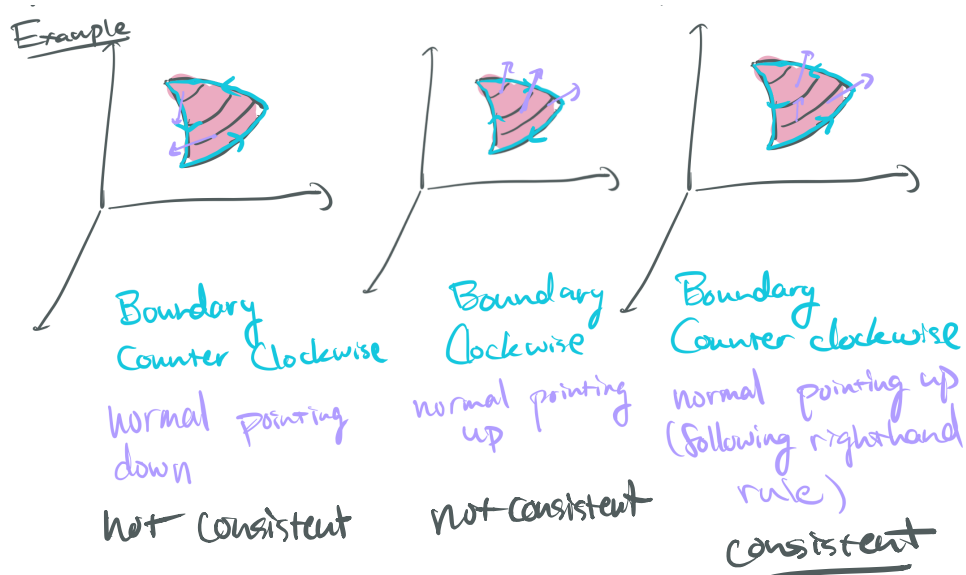 Example
Boundary
Counter Clockwise
normal pointing
down
not consistent
Boundary
Clockwise
normal pointing
up
not consistent
Boundary
Counter clockwise
normal pointing up
(following righthand
rule)
consistent